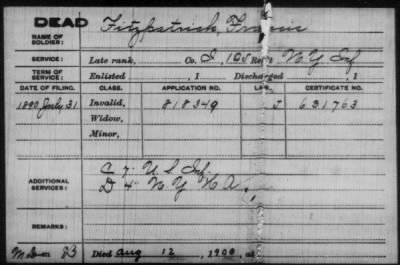 DEAD
NAME OF SOLDIER: Fitzpatrick, Francis
SERVICE: Late rank, Co. I, 105 Reg't N.Y. Inf
TERM OF SERVICE: Enlisted , 1 Discharged , 1
DATE OF FILING. CLASS. APPLICATION NO. LAW. CERTIFICATE NO.
1890 July 31 Invalid, 818349 J 631763
Widow,
Minor,
ADDITIONAL SERVICES: C 7" U S Inf.
D 4" N Y H A.
REMARKS:
Died Aug 12, 1900, at